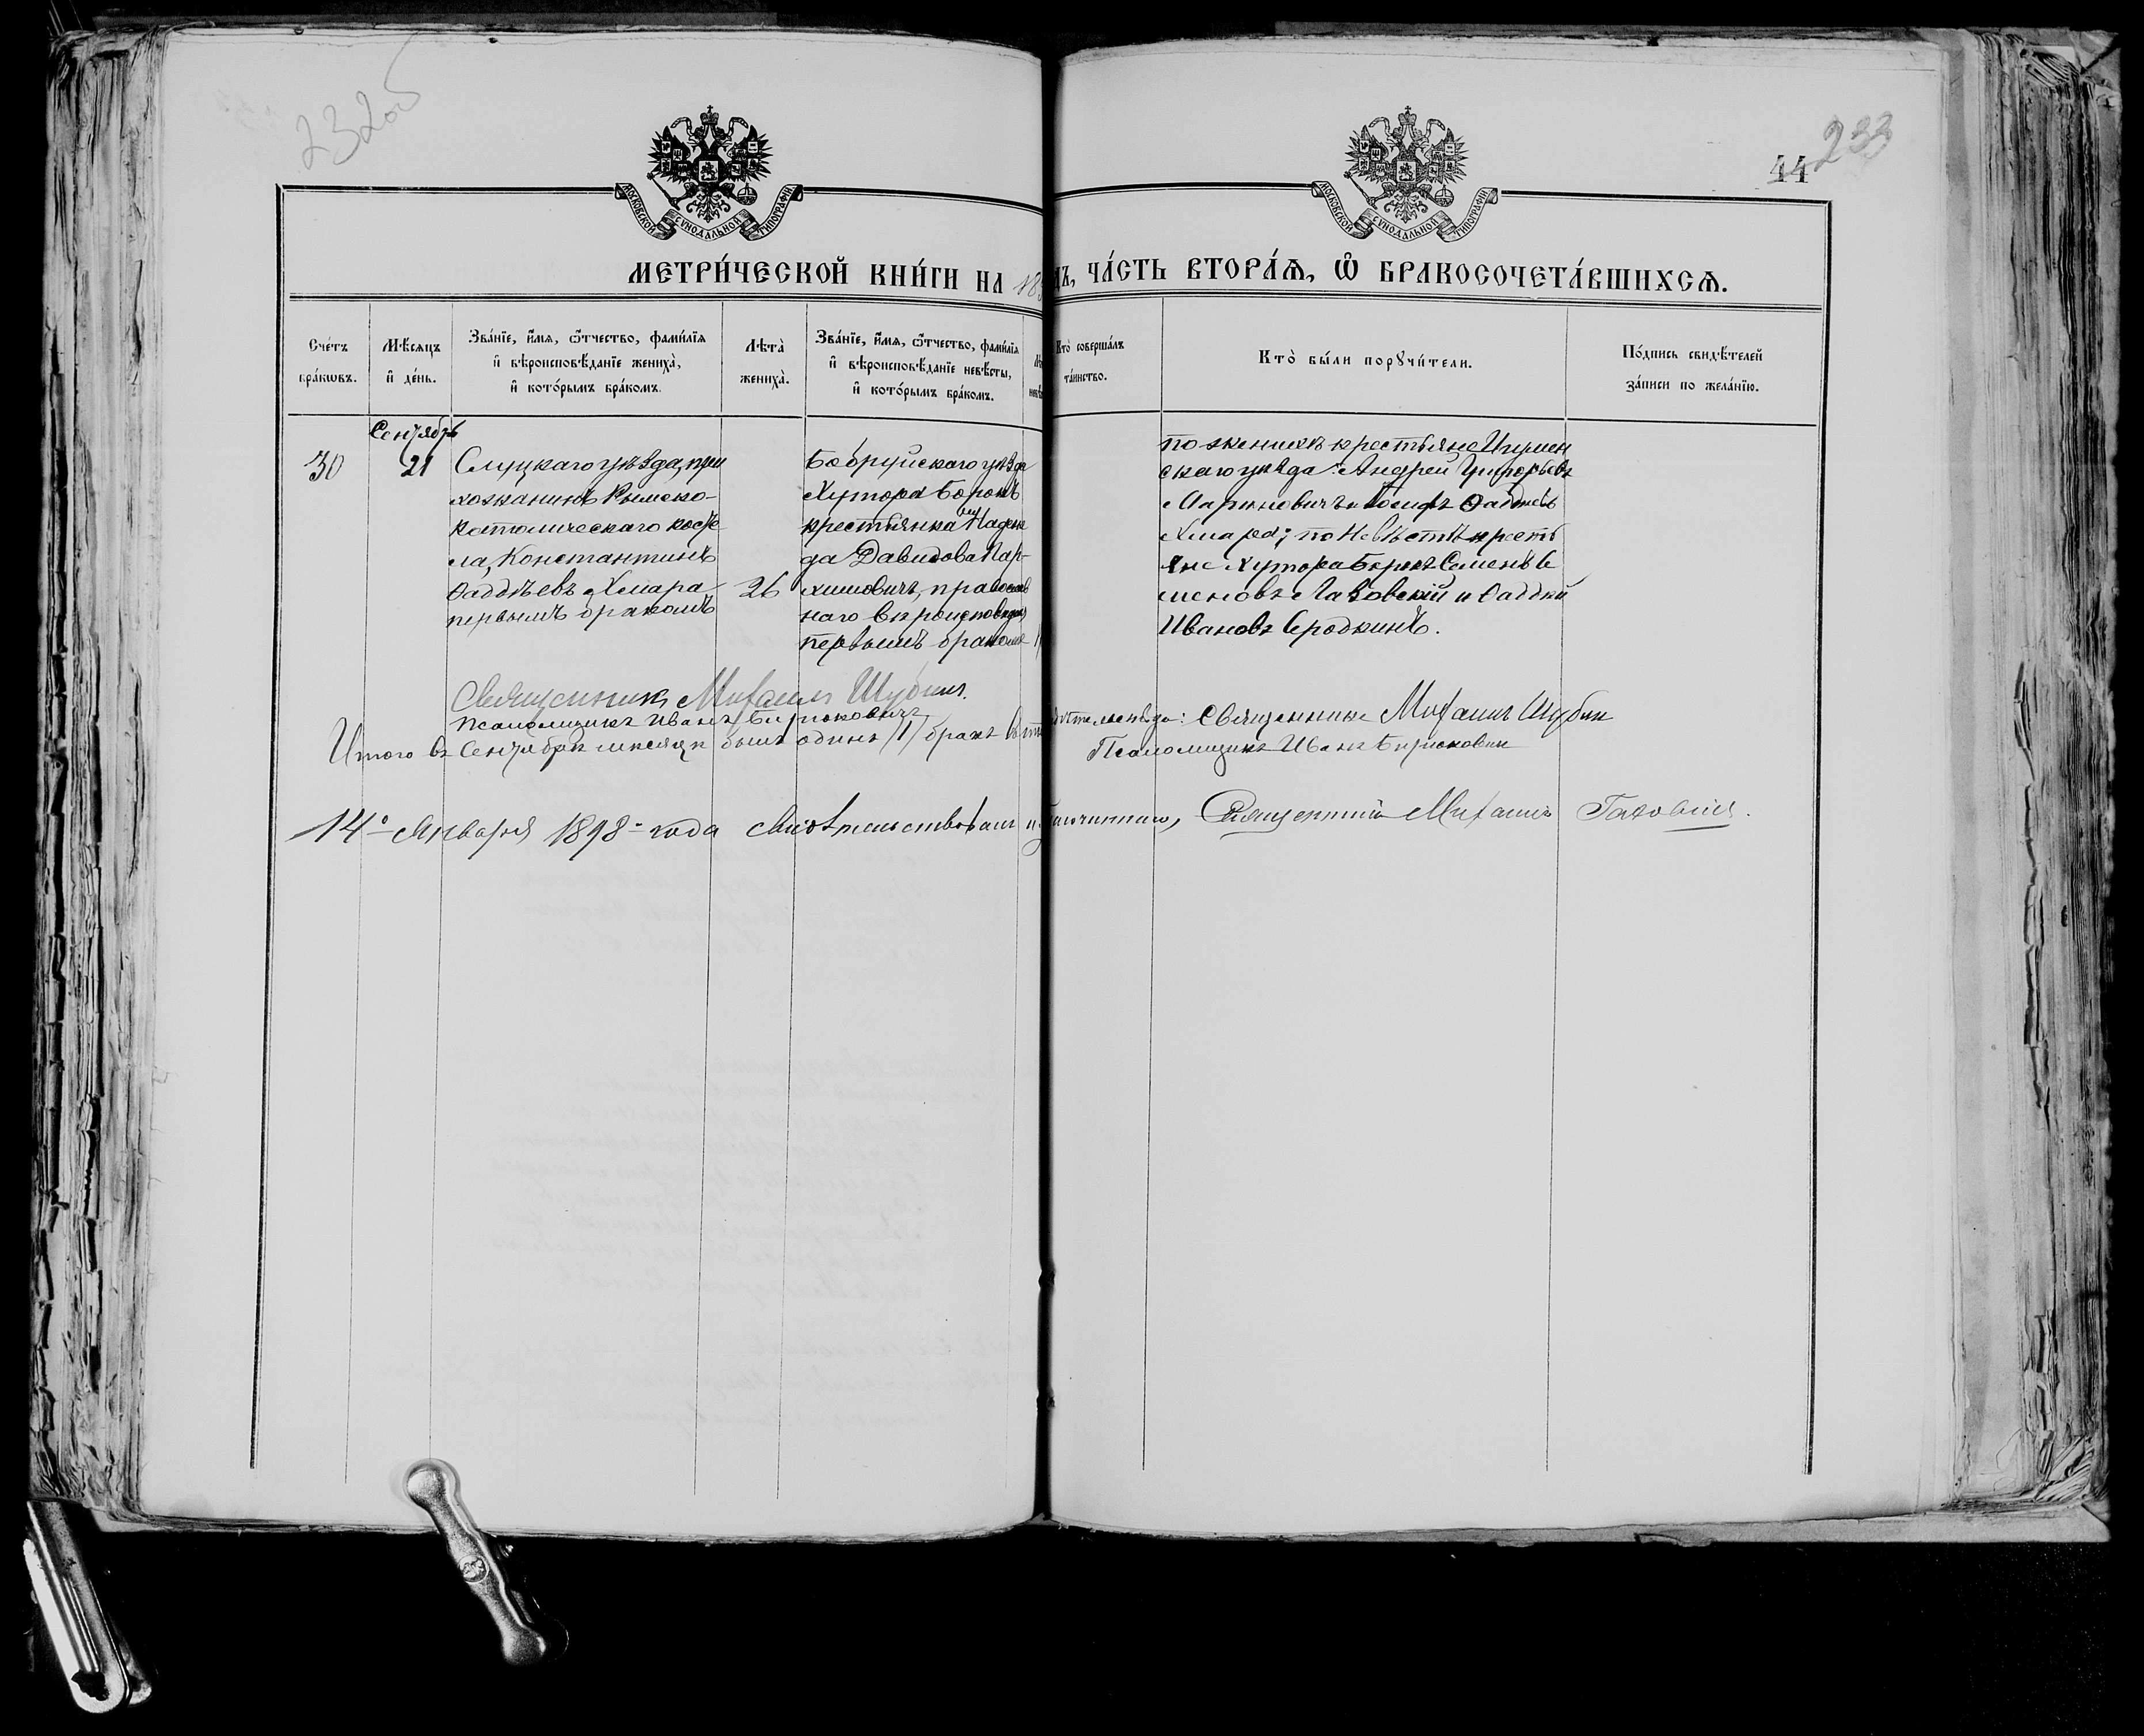 232об
44 233
МОСКОВСКОЙ СѴНОДАЛЬНОЙ ТИПОГРАФІИ
МОСКОВСКОЙ СѴНОДАЛЬНОЙ ТИПОГРАФІИ
МЕТРИ́ЧЕСКОЙ КНИ́ГИ НА 189
ДЪ, ЧА́СТЬ ВТОРА́Ѧ, Ѡ҆ БРАКОСОЧЕТА́ВШИХСѦ.
Сче́тъ бра́кѡвъ.
Мѣ́сяцъ и҆ де́нь.
Зва́нїе, и҆́мя, ѻ҆́тчество, фами́лїя и҆ вѣроисповѣ́данїе жениха̀, и҆ кото́рымъ бра́комъ.
Лѣта̀ жениха̀.
Зва́нїе, и҆́мя, ѻ҆́тчество, фами́лїя и҆ вѣроисповѣ́данїе невѣ́сты, и҆ кото́рымъ бра́комъ.
Кто̀ соверша́лъ та́инство.
Кто̀ бы́ли порꙋчи́тели.
По́дпись свидѣ́телей за́писи по жела́нїю.
Сентябрь
30
21
Слуцкаго уѣзда, при
хожанинъ Римско-
католическаго косте
ла, Константинъ
Ѳаддѣевъ Хмара
первымъ бракомъ
26
Бобруйскаго уѣзда
Хутора Борокъ
крестьянка Надеж
да Давидова Пар-
химовичъ, православ
наго вѣроисповѣданія
первымъ бракомъ
по женихѣ крестьяне Игумен
скаго уѣзда: Андрей Григорьевъ
Мариновичъ и Іосифъ Ѳаддеевъ
Хмара; по невѣстѣ кресть
яне хутора Борокъ Семенъ Се
меновъ Лазовскій и Ѳаддей
Ивановъ Сродкинъ.
Священникъ Михаилъ Шубин
Псаломщикъ Иванъ Бирюковичъ
Итого въ Сентябрѣ мѣсяцѣ былъ одинъ /1/ бракъ
Священникъ Михаилъ Шубин
Псаломщикъ Иванъ Бирюкович
14º Января 1898 - года свидѣтельствовалъ Священникъ Михаилъ